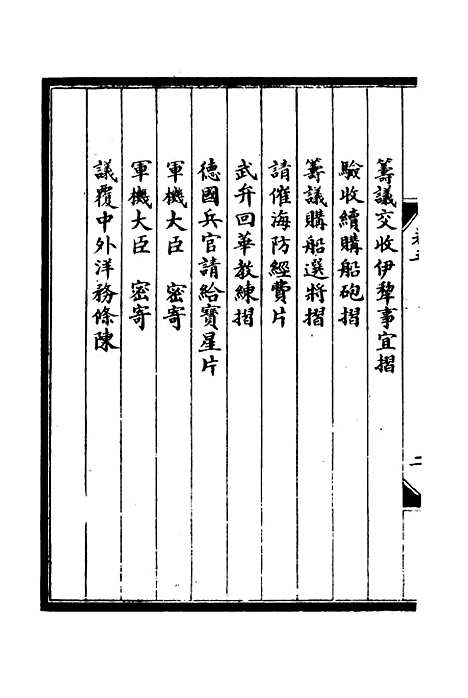 籌議交收伊犂事宜摺
驗收續購船砲摺
籌議購船選將摺
請催海防經費片
武弁回華教練摺
德國兵官請給寶星片
軍機大臣 密寄
軍機大臣 密寄
議覆中外洋務條陳
二